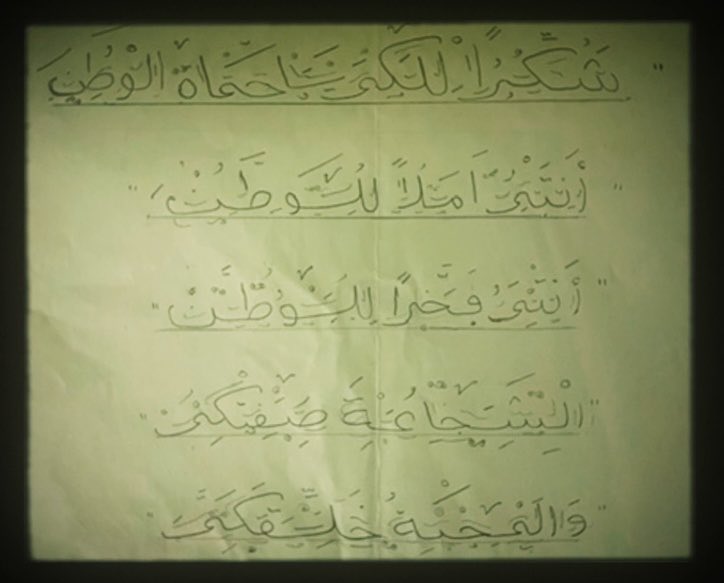 "شكراً لكي يا حماة الوطن
"أنتي املاً للوطن"
"أنتي فخراً للوطن"
"الشجاعة صفتكي"
"والمحبة خلقكي"